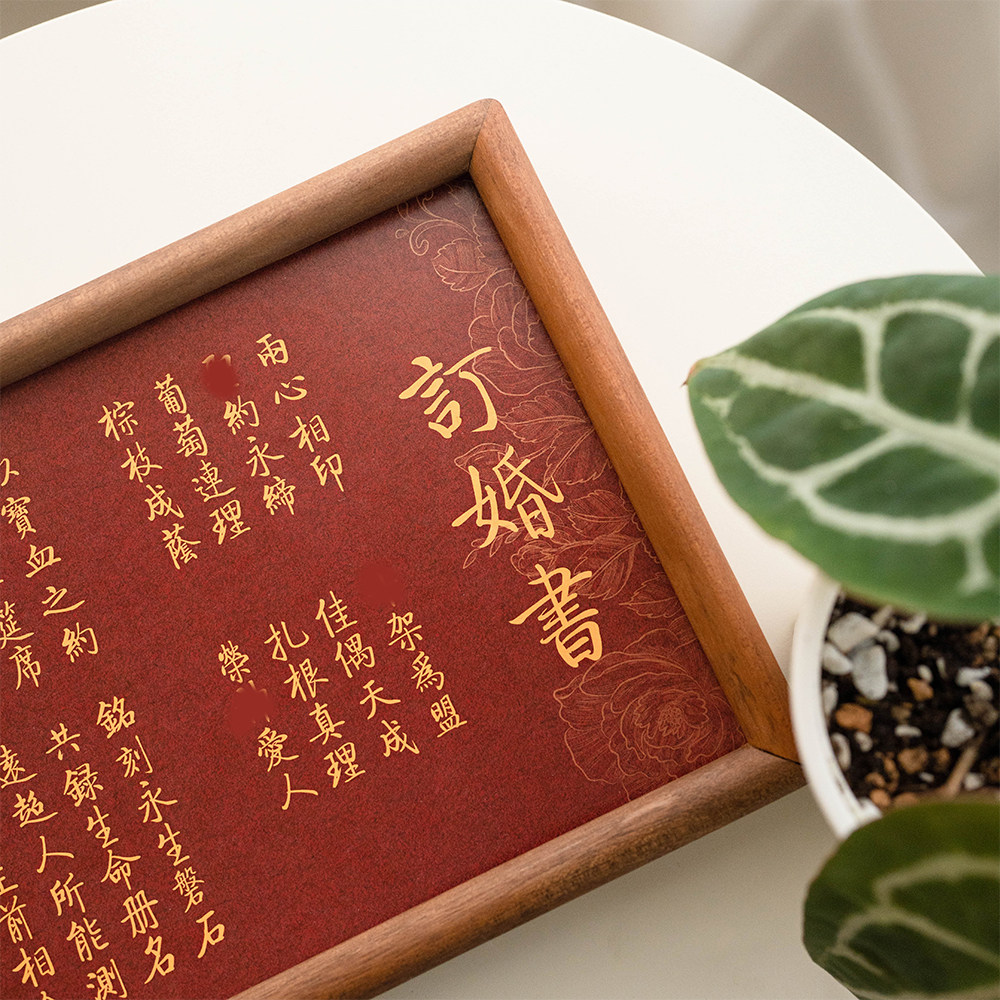 訂婚書
兩心相印
架爲盟
約永締
佳偶天成
葡萄連理
扎根真理
棕枝成蔭
榮 愛人
寶血之約
銘刻永生磐石
筵席
共録生命册名
遠超人所能測
前相